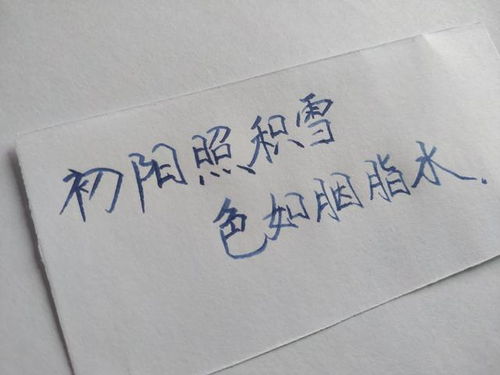 初阳照积雪
色如胭脂水.